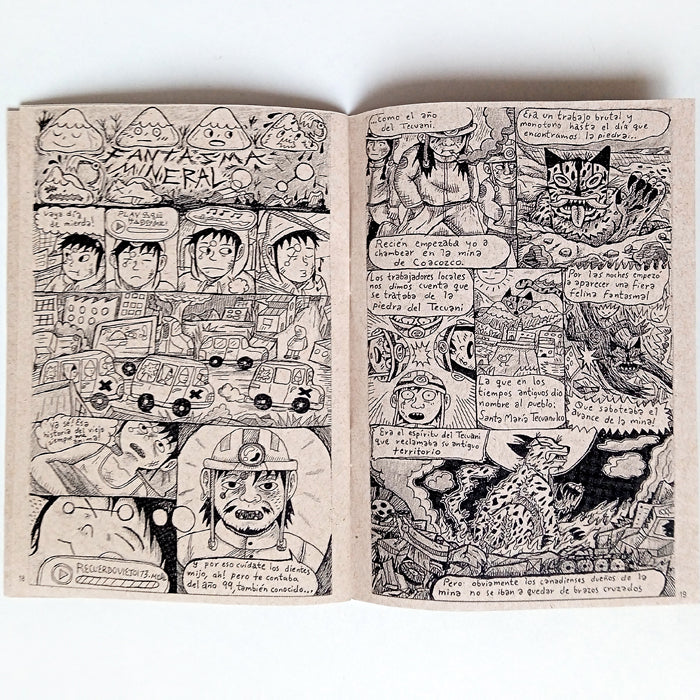 FANTASMA
MINERAL
Vaya día
de mierda!
PLAY
Ya sé! Esa
historia del viejo
RECUERDOVIEJO173.MOV
y por eso cuidate los dientes
mijo, ah! pero te contaba
del año 99, también conocido...
18
...como el año
del Tecuani.
Recién empezaba yo a
chambear en la mina
de Coacozco.
Era un trabajo brutal y
monotono hasta el día que
encontramos la piedra...
Los trabajadores locales
nos dimos cuenta que
se trataba de la
piedra del Tecuani
La que en los
tiempos antiguos dio
nombre al pueblo:
Santa María Tecuanulco
Por las noches empezó
a aparecer una fiera
felina fantasmal
Que saboteaba el
avance de la mina!
Era el espíritu del Tecuani
que reclamaba su antiguo
territorio
Pero obviamente los canadienses dueños de la
mina no se iban a quedar de brazos cruzados
19